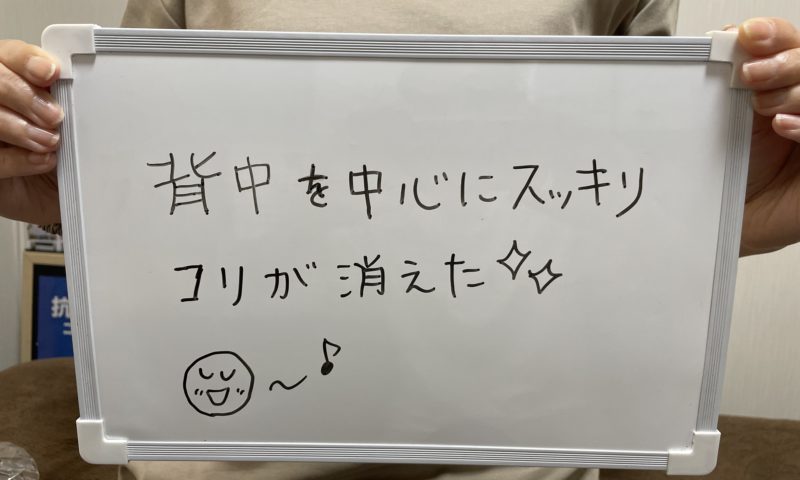 背中を中心にスッキリ
コリが消えた
抗